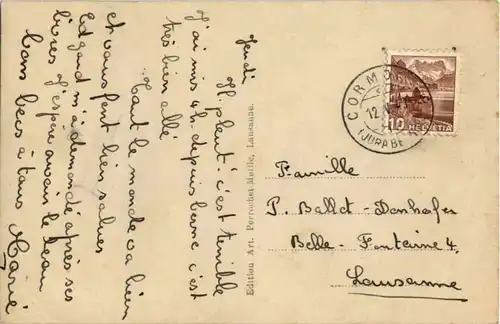 Jeudi
Il pleut: c'est terrible
j'ai mis 4 h. depuis Berne c'est
très bien allé
Tout le monde va bien
et vous font bien saluer
Edgard m'a demandé après ses
livres j'espère avoir le beau
bons becs à tous Marie
Edition Art. Perrochet-Matile, Lausanne.
CORMO
12.
(JURA BE
10 HELVETIA
Famille
P. Ballet-Danhofer
Belle-Fontaine 4.
Lausanne